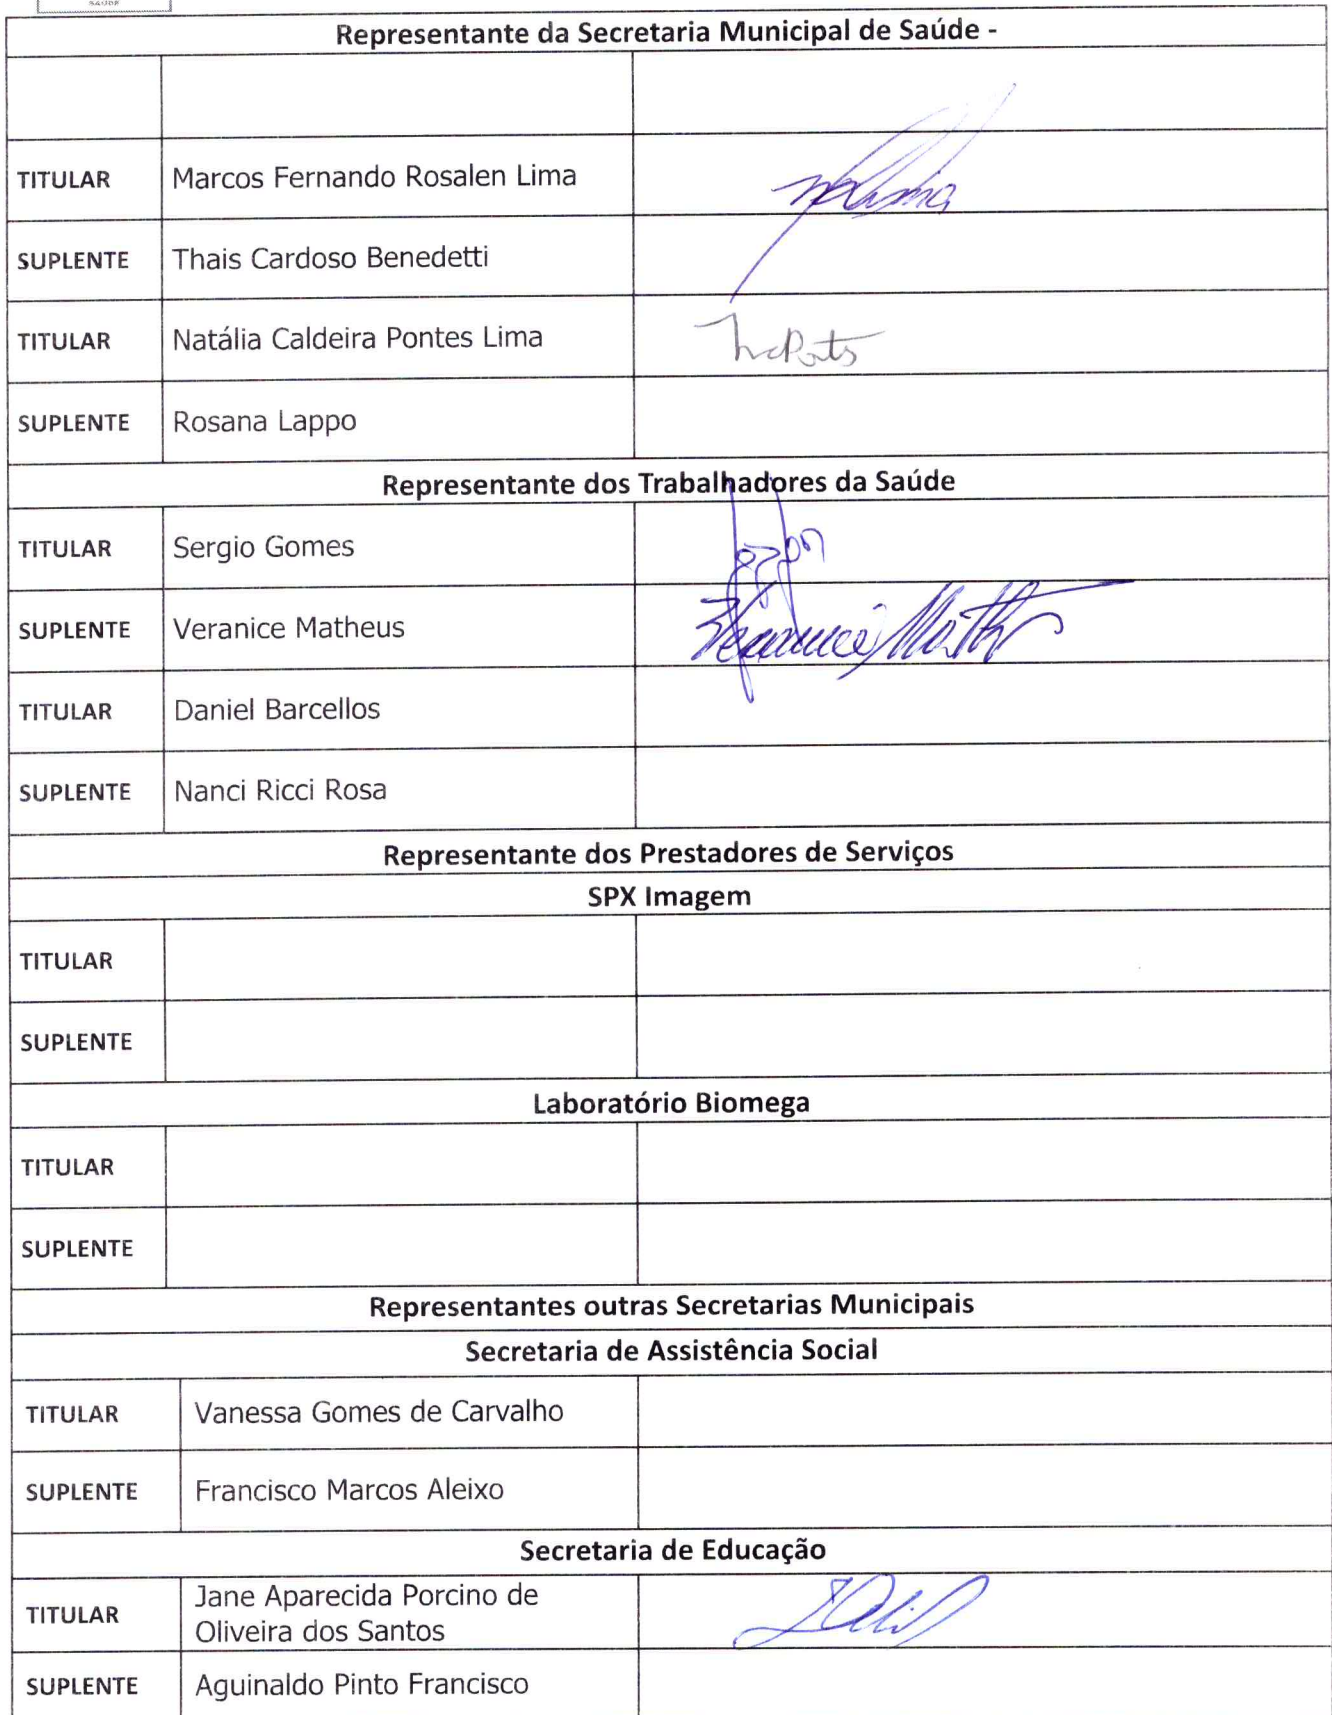 SAÚDE
Representante da Secretaria Municipal de Saúde -
TITULAR Marcos Fernando Rosalen Lima
SUPLENTE Thais Cardoso Benedetti
TITULAR Natália Caldeira Pontes Lima
SUPLENTE Rosana Lappo
Representante dos Trabalhadores da Saúde
TITULAR Sergio Gomes
SUPLENTE Veranice Matheus
TITULAR Daniel Barcellos
SUPLENTE Nanci Ricci Rosa
Representante dos Prestadores de Serviços
SPX Imagem
TITULAR
SUPLENTE
Laboratório Biomega
TITULAR
SUPLENTE
Representantes outras Secretarias Municipais
Secretaria de Assistência Social
TITULAR Vanessa Gomes de Carvalho
SUPLENTE Francisco Marcos Aleixo
Secretaria de Educação
TITULAR Jane Aparecida Porcino de
Oliveira dos Santos
SUPLENTE Aguinaldo Pinto Francisco